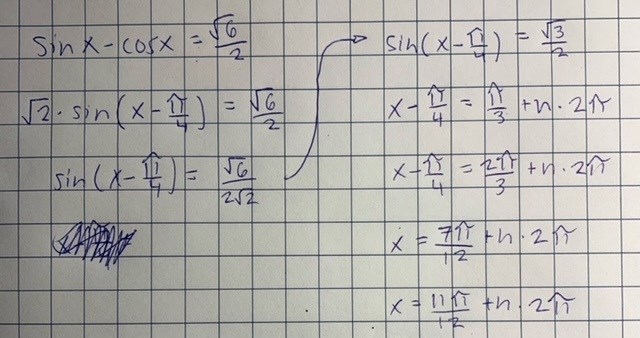 sin x - cos x = √6/2
√2 · sin(x - π/4) = √6/2
sin(x - π/4) = √6/2√2
sin(x - π/4) = √3/2
x - π/4 = π/3 + n · 2π
x - π/4 = 2π/3 + n · 2π
x = 7π/12 + n · 2π
x = 11π/12 + n · 2π